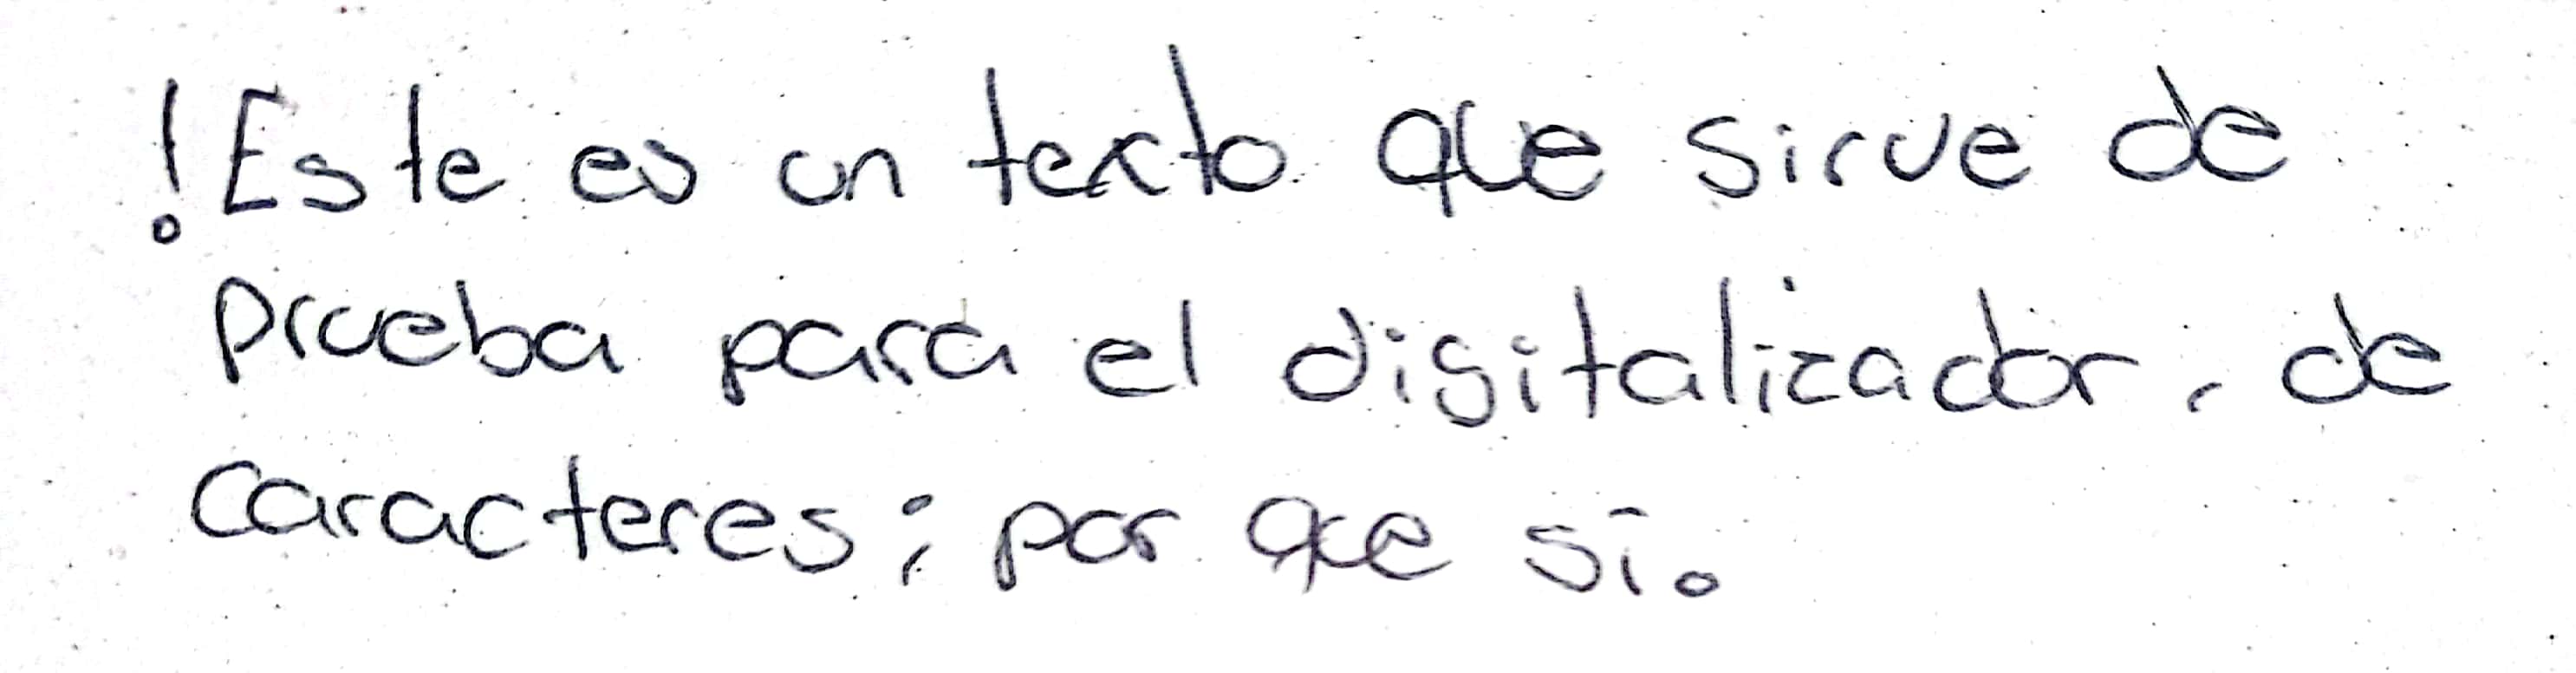 !Este es un texto que sirve de
prueba para el digitalizador, de
caracteres; por que sí.